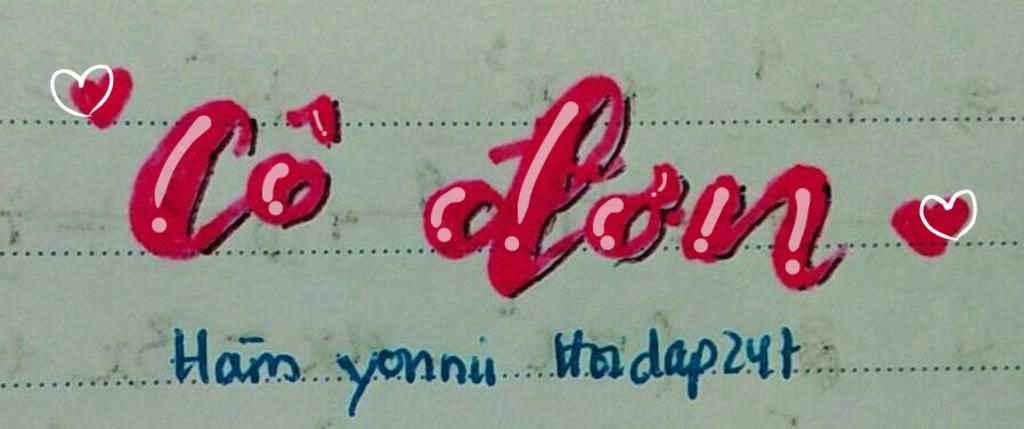 Cô đơn
yonnii Hoidap247